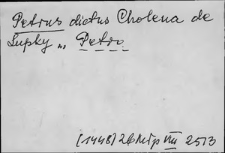 Petrus dictus Cholena de
Lupky „ Petro
(1448) ZDMsp VIII 2513